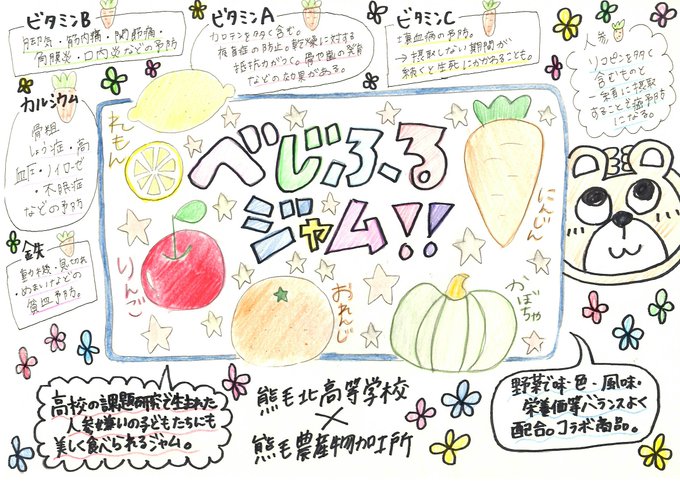 ビタミンB
脚気・筋肉痛・関節痛・
角膜炎・口内炎などの予防
ビタミンA
カロテンを多く含む。
夜盲症の防止。乾燥に対する
抵抗力がつく。骨や歯の発育
などの効果がある。
ビタミンC
壊血病の予防。
→摂取しない期間が
続くと生死にかかわることも。
人参
リコピンを多く
含むものと
一緒に摂取
することで癌予防
になる。
カルシウム
骨粗
しょう症・高
血圧・ノイローゼ
・不眠症
などの予防
鉄
動悸・息切れ
・めまいなどの
貧血予防。
れもん
べじふる
ジャム!!
にんじん
りんご
おれんじ
かぼちゃ
高校の課題研究で生まれた
人参嫌いの子どもたちにも
美しく食べられるジャム。
熊毛北高等学校
×
熊毛農産物加工所
野菜で味・色・風味・
栄養価等バランスよく
配合。コラボ商品。